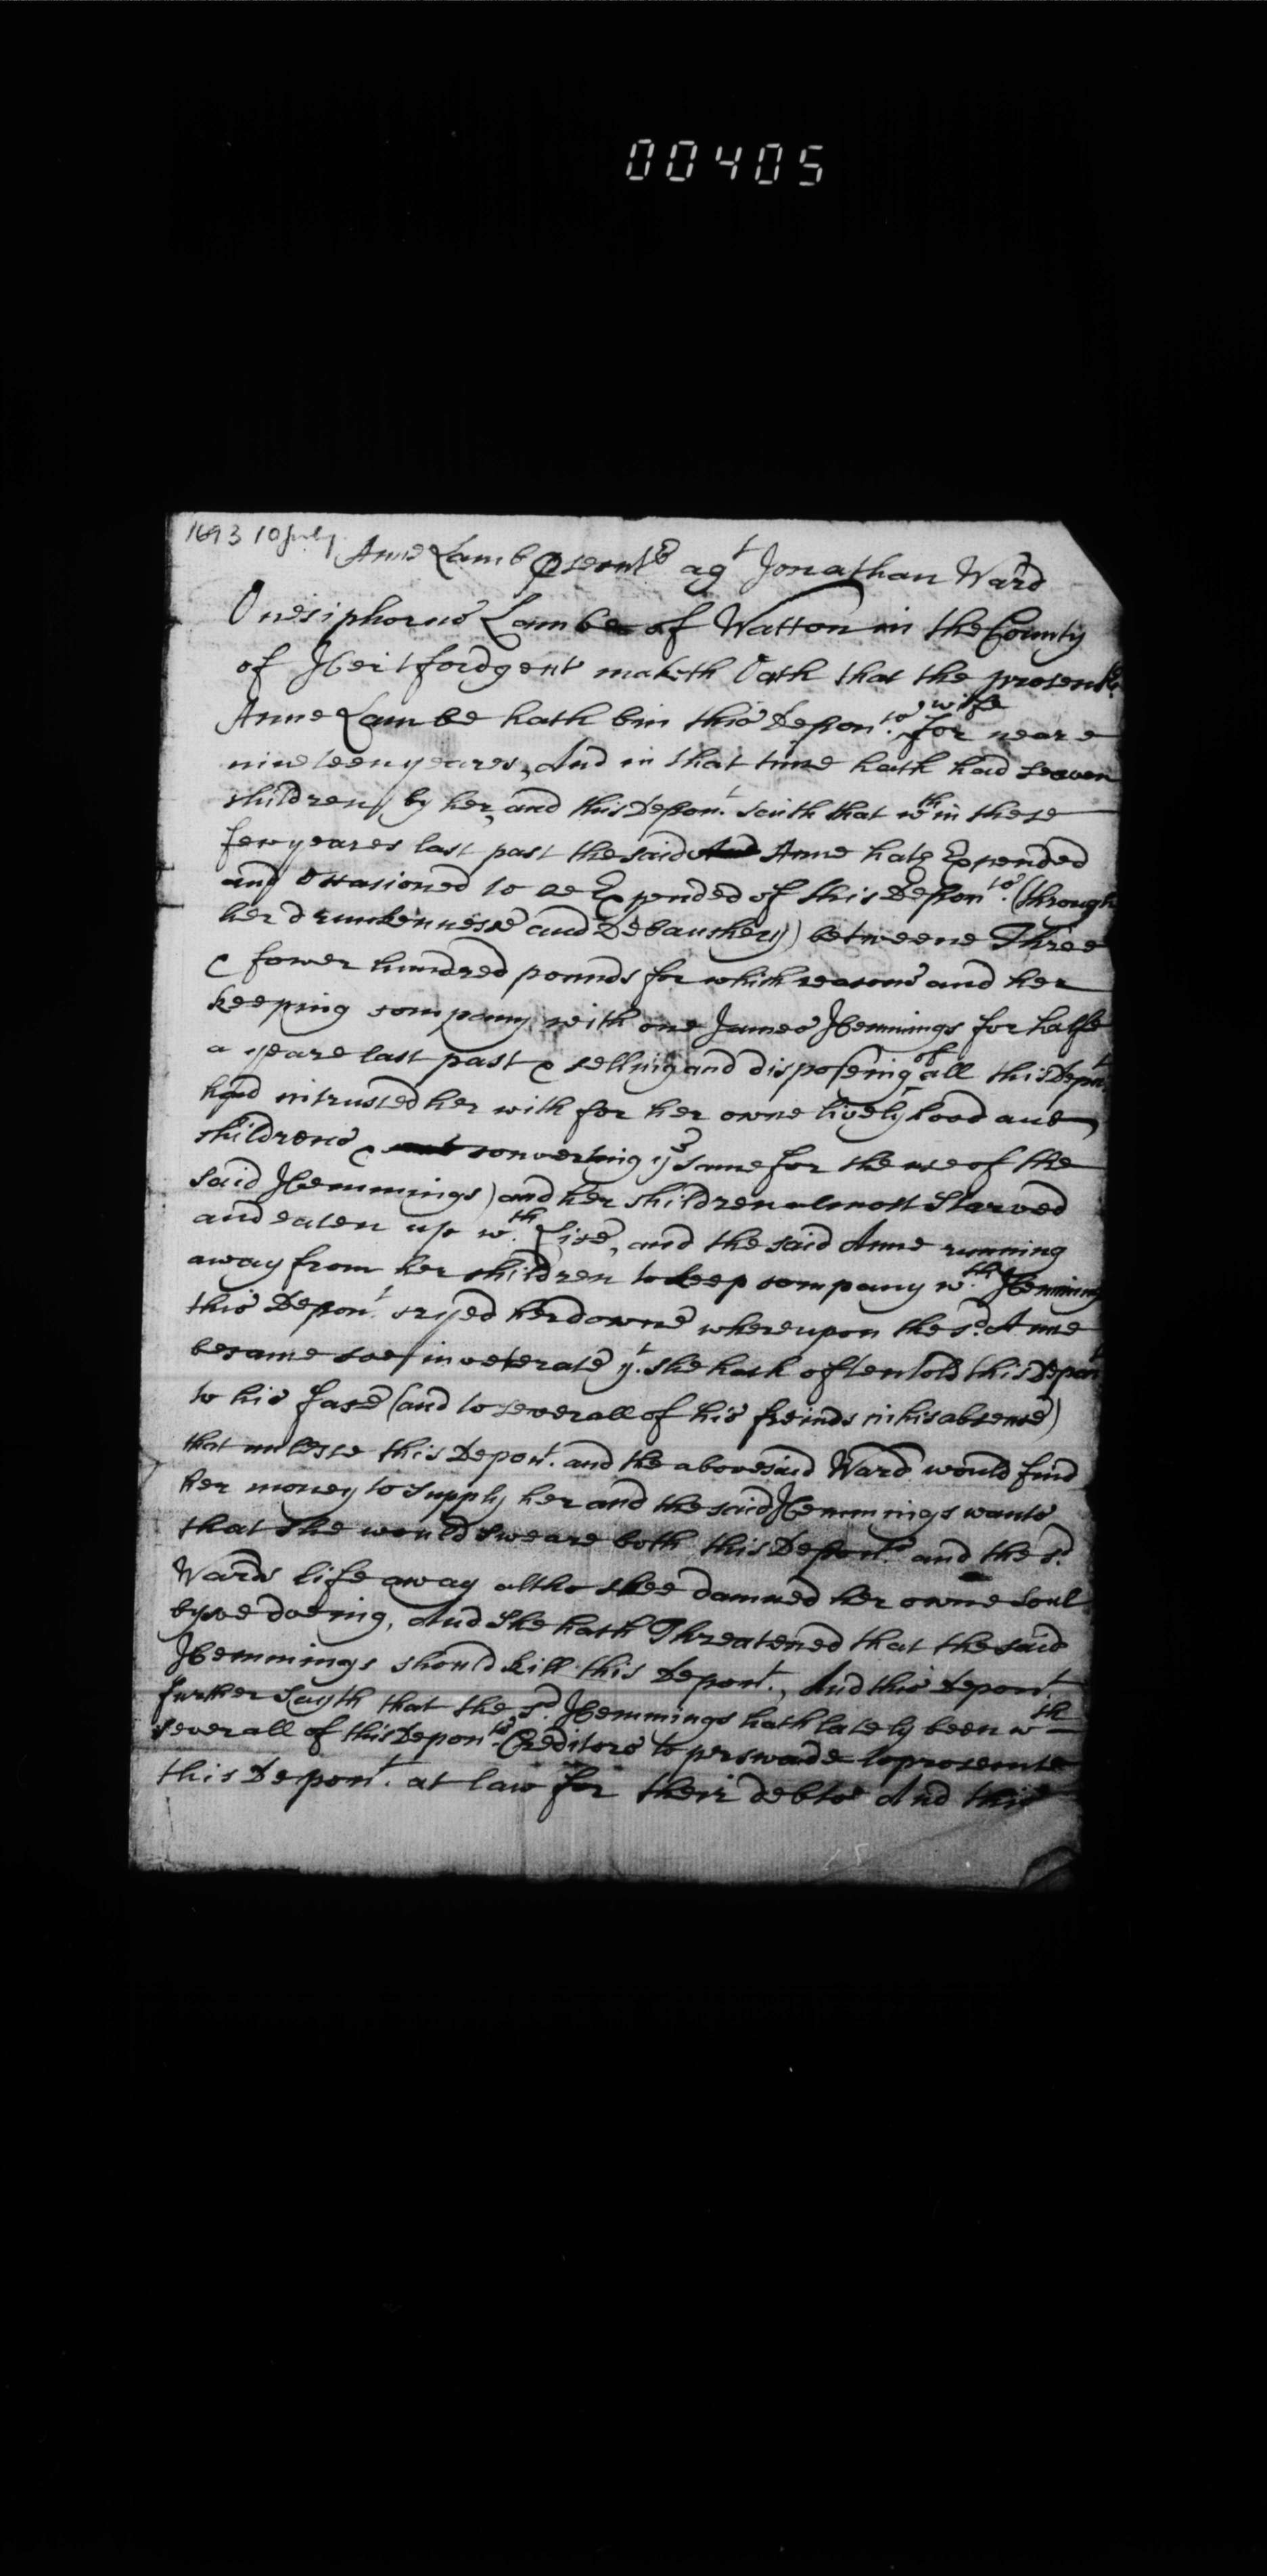 00405
1693 10 July
Anne Lamb p'secutr agt Jonathan Ward
Onesiphorus Lambe of Watton in the County
of Hertford gent maketh Oath that the prosecutr
Anne Lambe hath bin this Deponts wife for neare
nineteen yeares, And in that time hath had seaven
children by her, and this Depont saith that wth in these
few yeares last past the said Anne hath Expended
and Occasioned to be Expended of this Deponts (through
her drunkennesse and Debauchery) betweene Three
& fower hundred pounds for which reasons and her
keeping company with one James Hemmings for halfe
a yeare last past & selling and disposeing of all this Depont
had intrusted her with for her owne livelyhood and
childrens & converting ye same for the use of the
said Hemmings) and her children almost Starved
and eaten up wth Lice, and the said Anne running
away from her children to keep company wth Hemmings
this Depont cryed her downe whereupon the sd Anne
became soe inveterate yt she hath often told this Depont
to his face (and to severall of his freinds in his absence)
that unlesse this Depont. and the abovesaid Ward would find
her money to Supply her and the said Hemmings wants
that She would Sweare both this Deponts and the sd
Wards life away altho shee damned her owne soul
by soe doeing, And She hath Threatened that the said
Hemmings should kill this Depont., And this Depont
further Sayth that the sd Hemmings hath lately been wth
severall of this Deponts Creditors to perswade to prosecute
this Depont. at law for their debts And this